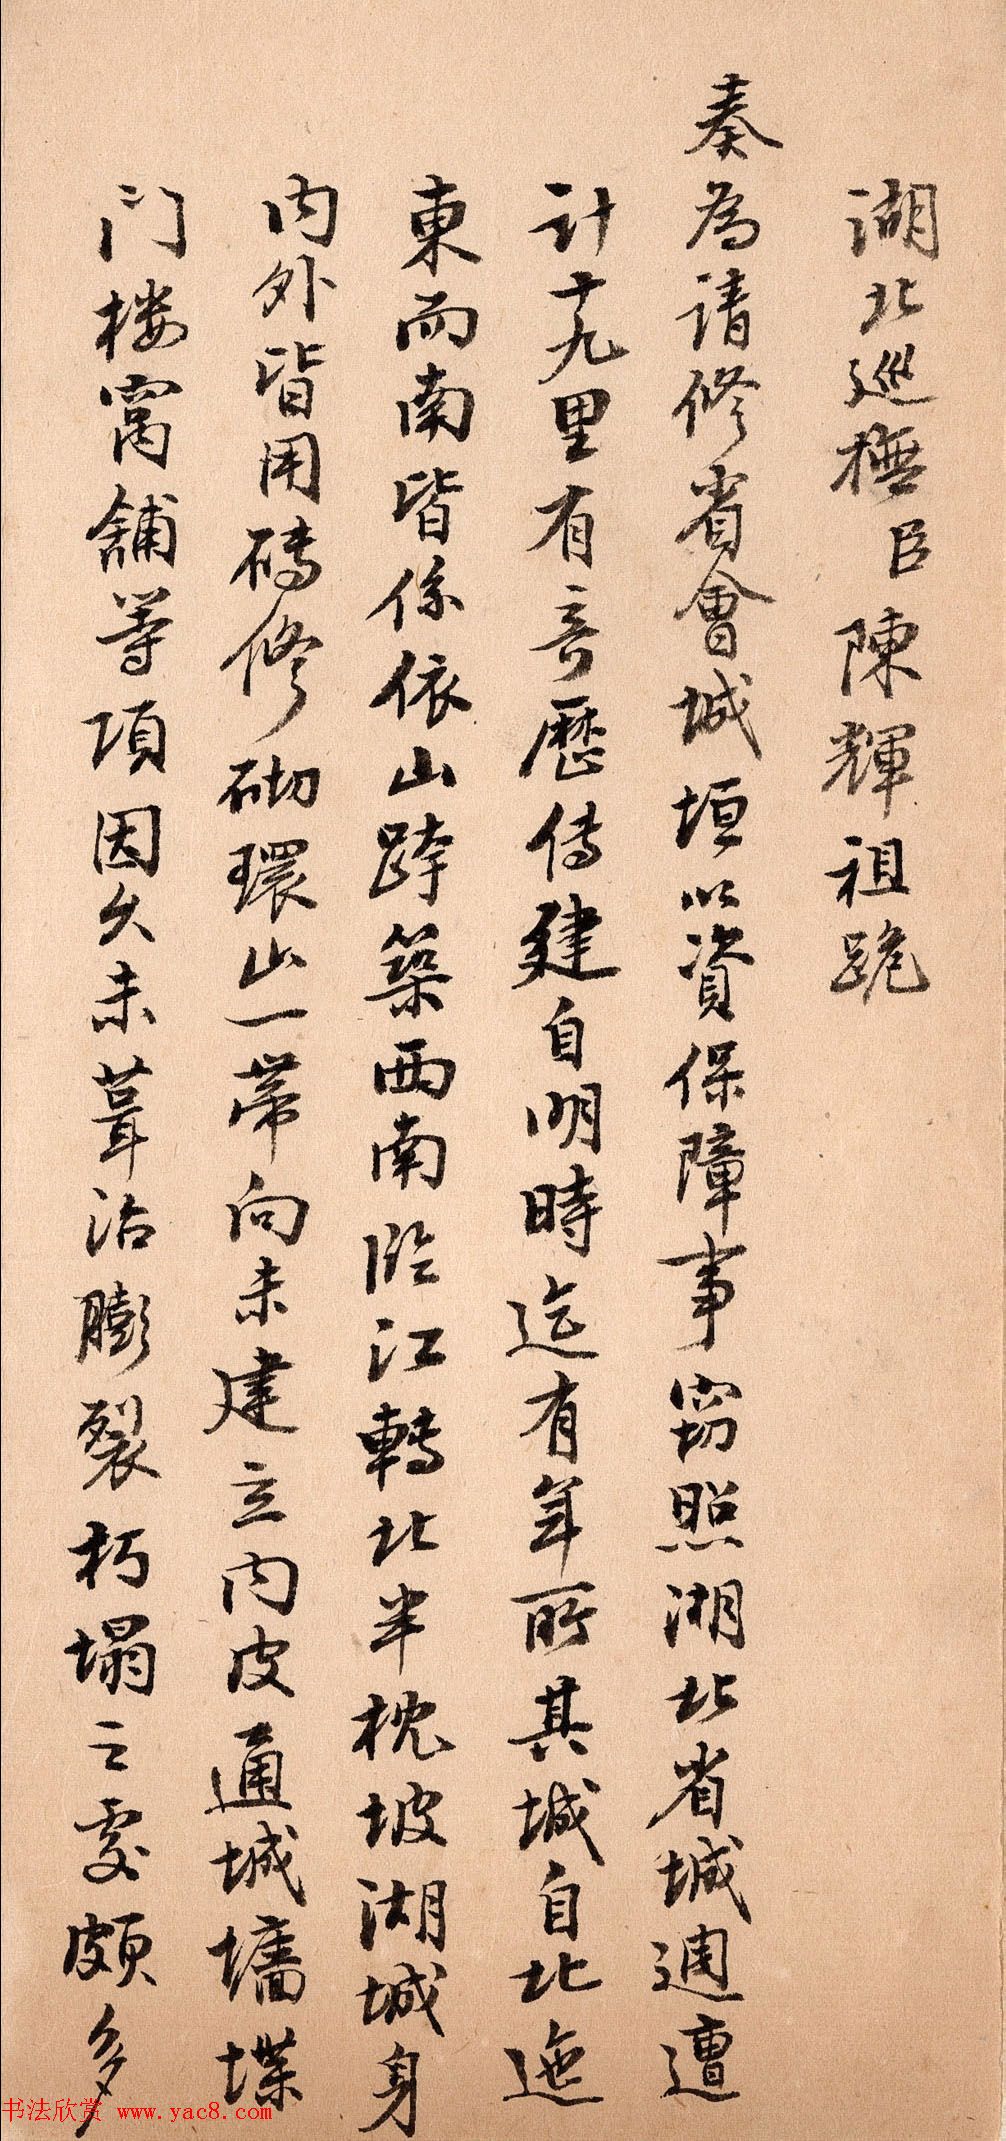 湖北巡撫臣陳輝祖跪
奏為請修省會城垣以資保障事窃照湖北省城週遭
計十九里有竒歷傳建自明時迄有年所其城自北迤
東而南皆係依山跨築西南臨江轉北半枕坡湖城身
内外皆用磚修砌環山一帶向未建立内皮通城墻堞
门楼窩舖等項因久未葺沾膨裂朽塌之處頗多
书法欣赏 www.yac8.com